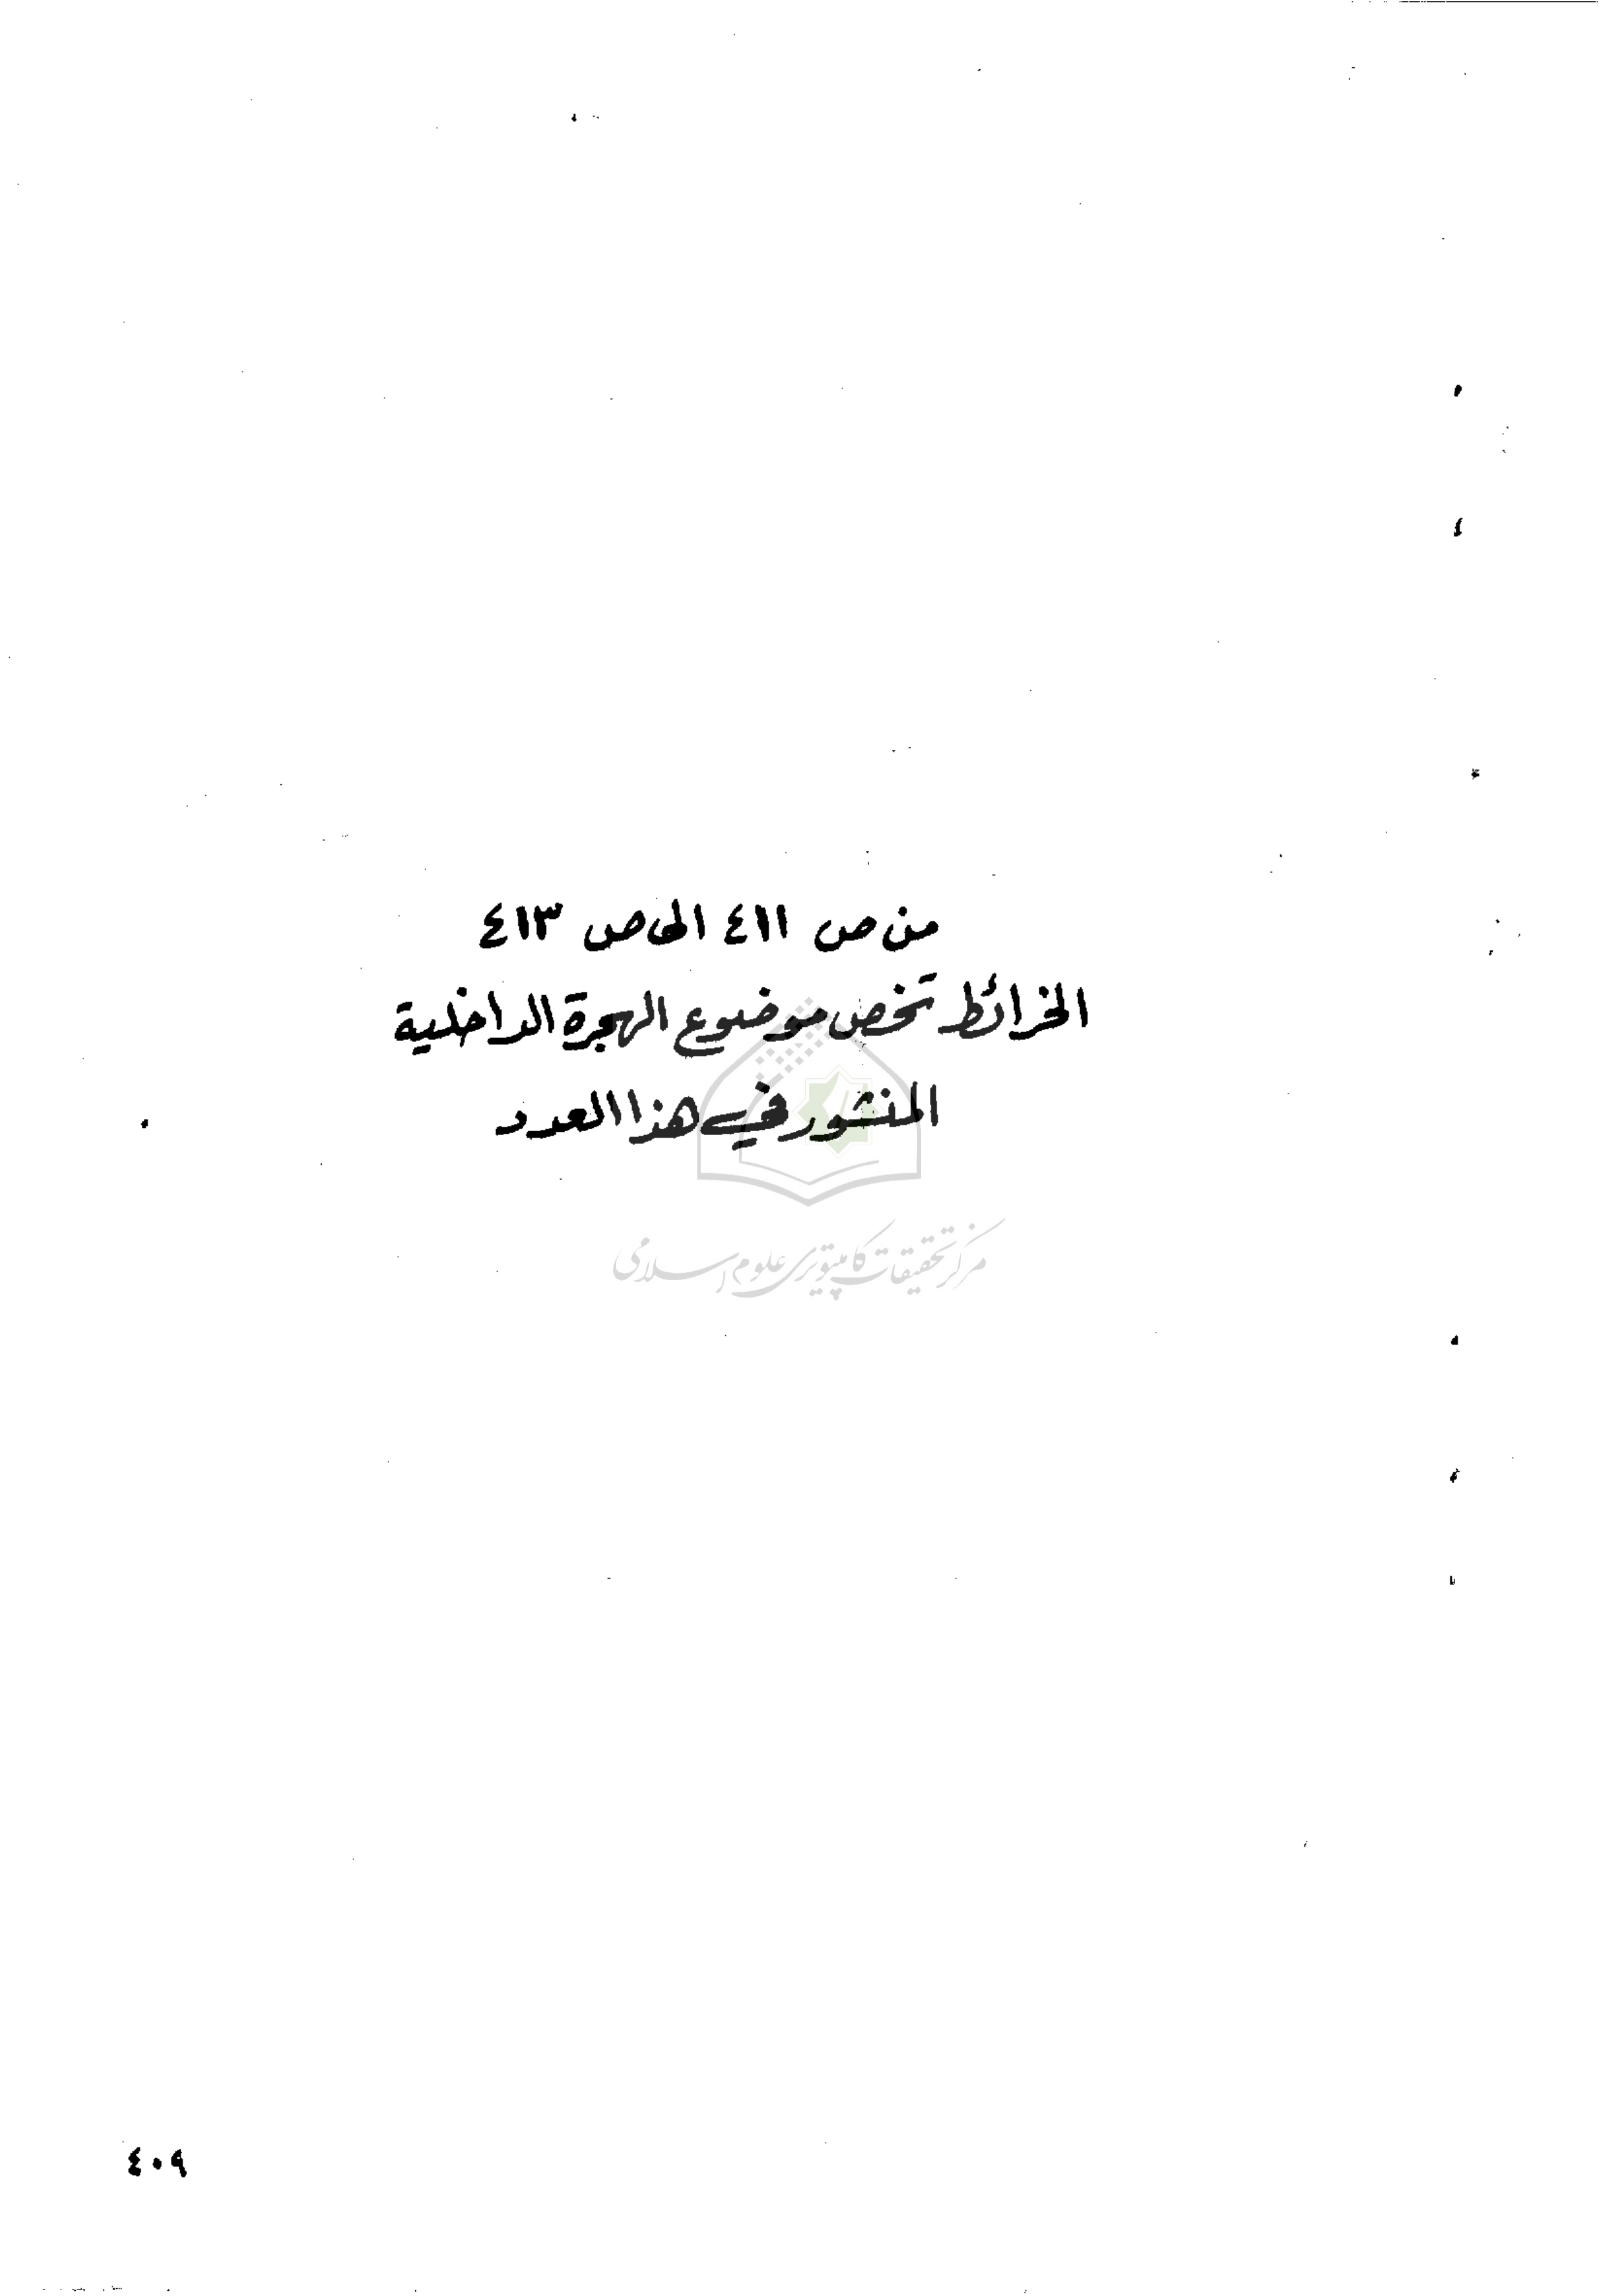 من ص ٤١١ الى ص ٤١٣
الخرائط تخص موضوع الهجرة الداخلية
المنشور في هذا العدد
مركز تحقیقات كامپیوتری علوم اسلامی
٤٠٩